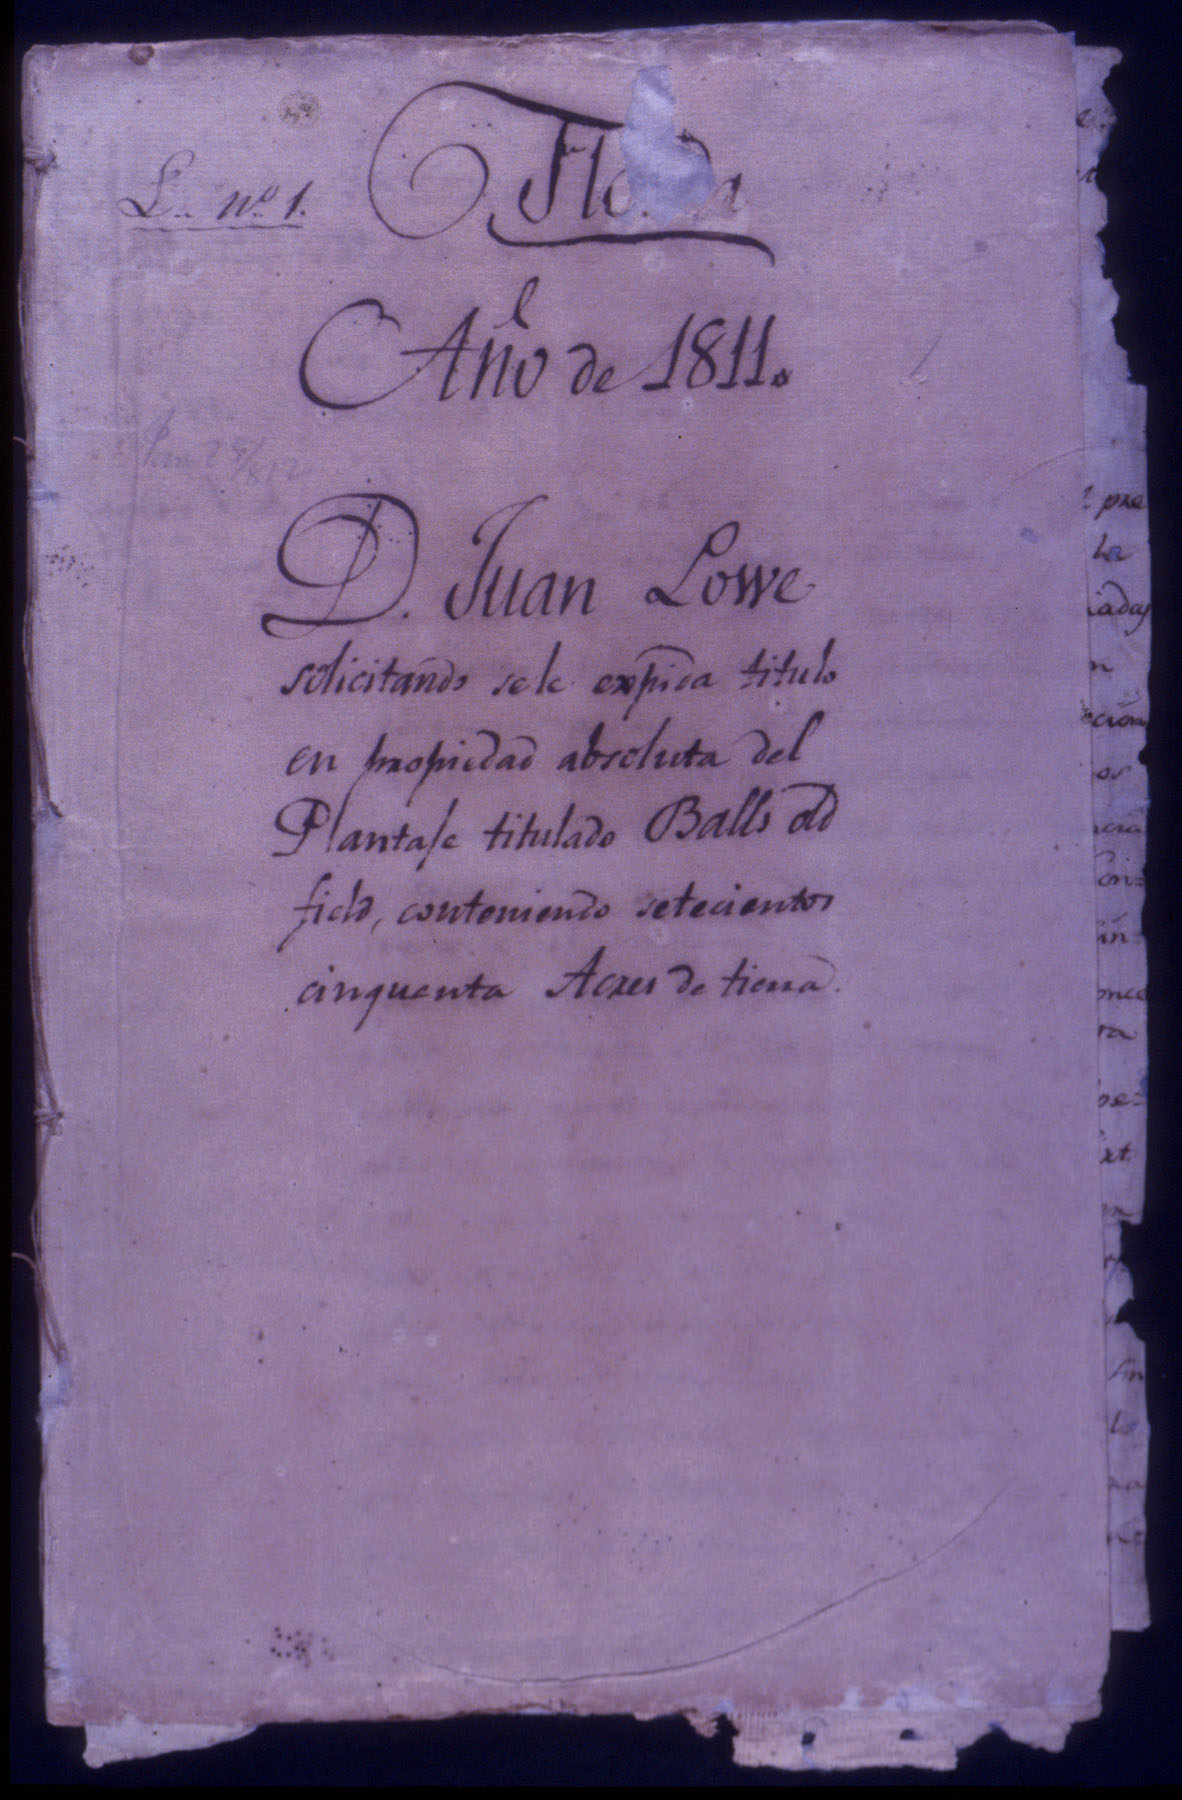 L.. nº 1.
Florida
Año de 1811.
D. Juan Lowe
solicitando sele expida titulo
en propiedad absoluta del
Plantaje titulado Balls old
field, conteniendo setecientos
cinquenta Acres de tierra.
pre
la
iadas
n
ción
os
ncia
Con=
ún=
once
ra
pe=
ext.